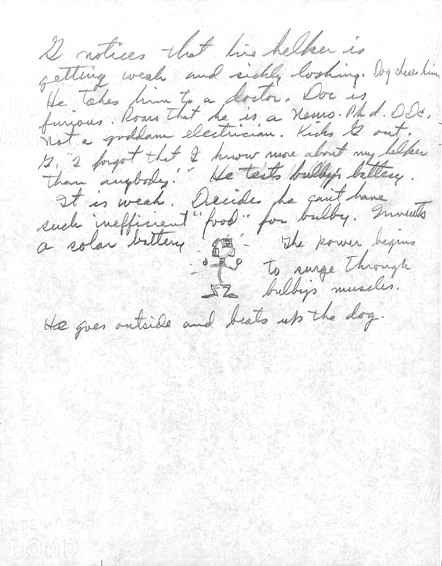 G notices that his helker is
getting weak and sickly looking. Dog chews him
He takes him to a doctor. Doc is
furious. Roars that he is a Neuro. Ph.d. O.Oc.
not a goddam electrician. Kicks G out.
G, "I forgot that I know more about my helker
than anybody!" He tests bulby's battery.
It is weak. Decides he can't have
such inefficient "food" for bulby. Invents
a solar battery
The power begins
to surge through
bulbys muscles.
He goes outside and beats up the dog.